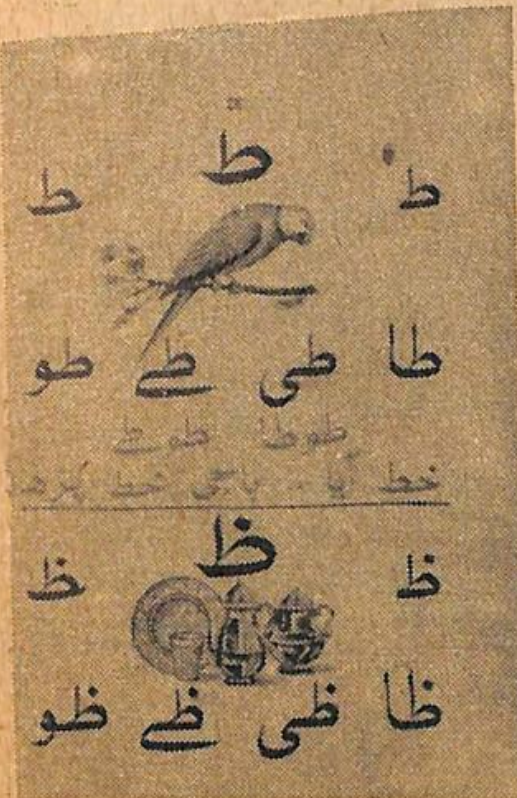 ط
ط ط
طا طی طے طو
طوطا طوطے
خط آیا - باجی خط پڑھ
ظ
ظ ظ
ظا ظی ظے ظو